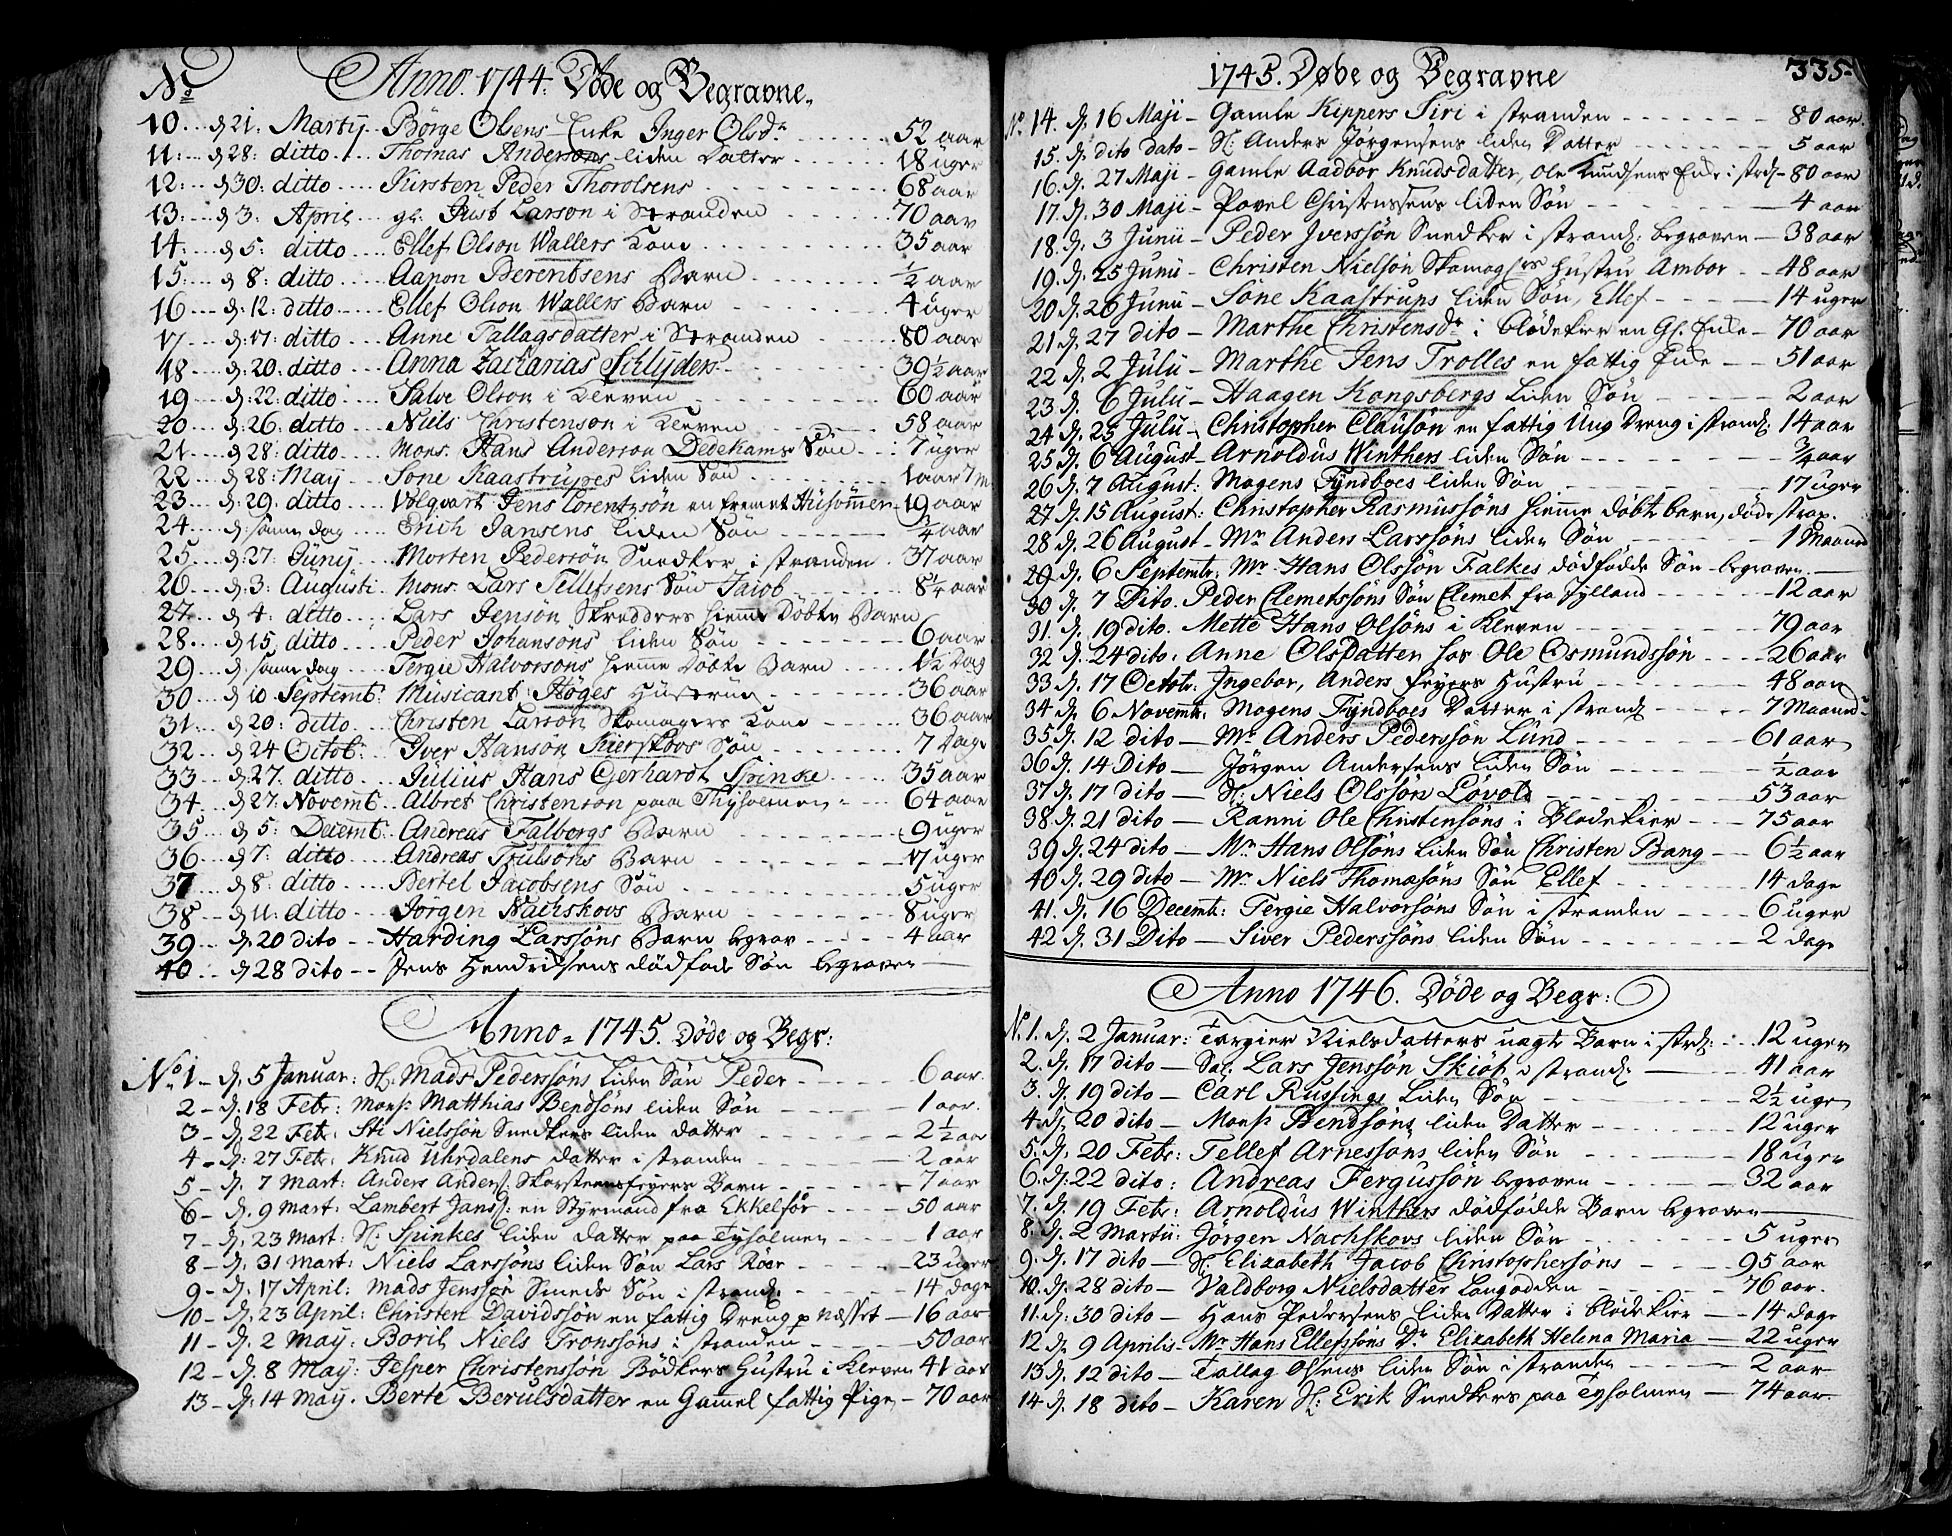 No Anno 1744. Døde og Begravne.
10... d 21: Martij Børge Olsens Enke Inger Olsdr ... 52 aar
11:... d 28: ditto Thomas Andersons liden Datter ... 18 uger
12:... d 30: ditto .... Kirsten Peder Thorolsens ... 68 aar
13:... d 3: April ... gl: Just Larson i Stranden ... 70 aar
14:... d 5: ditto .... Ellef Olson Wallers Kone ... 35 aar
15... d 8: ditto .... Aanon Berentsens Barn ... ½ aar
16... d: 12: ditto .... Ellef Olson Wallers Barn ... 4 uger
17... d: 17: ditto .... Anne Tallagsdatter i Stranden ... 80 aar
18... d: 20: ditto .... Anna Zacharias Schlyders ... 39½ aar
19... d: 22: ditto .... Salve Olson i Kleven ... 60 aar
20... d: 26: ditto .... Niels Christenson i Kleven ... 58 aar
21... d 28: ditto .... Mons. Hans Anderson Dedekams Søn ... 7 uger
22... d 28: Maij ... Søne Kaastrupes liden Søn ... 1 aar 7 m
23... d: 29: ditto ... Volqvart Jens Lorentzsøn en fremet Husømmer - 19 aar
24... d: samme dag ... Erich Jansens liden Søn ... ¾ aar
25... d: 27: Junij ... Morten Pedersøn Snedker i stranden . 37 aar
26... d: 3: Augusti . Mons. Lars Tellefsens Søn Jacob ... 8¼ aar
27... d 4: ditto ... Lars Jenson Skredders hiemme Døbte Barn
28... d 15 ditto ... Peder Johansøns liden Søn ... 6 aar
29... d: samme dag ... Tergie Halvorsons hiemme Døbte Barn ... 1½ Dag
30... d 10 Septemb: Musicant Høges Hustrue ... 36 aar
31... d 20: ditto ... Christen Larsøn Skomagers Kone ... 36 aar
32... d 24 Octob: Iver Hansøn Kierskovs Søn ... 7 Dage
33... d: 27. ditto ... Julius Hans Gerhardt Spinke ... 35 aar
34... d 27: Novemb .. Albret Christenson paa Thyholmen ... 64 aar
35... d 5: Decemb. Andreas Falborgs Barn ... 9 uger
36... d 7: ditto .... Andreas Trulsøns Barn ... 17 uger
37... d 8: ditto .... Bertel Jacobsens Søn ... 5 uger
38... d 11: ditto ... Jørgen Nachskovs Barn ... 8 uger
39... d: 20 dito -- Harding Larssøns Barn begrav ... 4 aar
40... d 28 dito -- Jens Hendrichsens dødføde Søn begraven
Anno 1745. Døde og Begr:
No 1 - d. 5 Januar: Hr. Mads Pederssøns liden Søn Peder ... 6 aar.
2 - d. 18 Febr: Monsr. Matthias Bendsøns liden Søn ... 1 aar.
3 - d. 22 Feb: Sti Nielssøn Snedkers liden datter ... 2½ aar
4 - d: 27 Febr: Knud Uhrdalens datter i stranden ... 2 aar
5 - d. 7 Mart: Anders Anders: Skorsteensfeyers Barn ... 7 aar
6 - d. 9 Mart: Lambert Jans: en Styrmand fra Ekkelsør ... 50 aar
7 - d. 23 Mart: Hr. Spinkes liden datter paa Tyholmen ... 1 aar
8 - d. 31 Mart: Niels Larssøns liden Søn Lars Røer ... 23 uger
9 - d. 17 April: Mads Jenssøn Smeds Søn i strand: ... 14 dage
10 - d. 23 April: Christen Davidssøn en fattig Dreng p næsset - 16 aar
11 - d. 2 Maij: Boril Niels Tronssøns i stranden ... 50 aar
12 - d. 8 Maij: Jesper Christenssøn Bødkers Hustru i Kleven 41 aar
13 - d: 14 Maij. Berte Berulsdatter en Gammel fattig Pige - 70 aar
1745. Døde og Begravne 335.
No. 14. d. 16 Maji - Gamle Kippers Siri i stranden ... 80 aar.
15. d. dito dato - Hr: Anders Jørgensens liden Datter ... 5 aar
16. d. 27 Maji - Gamle Aadbor Knudsdatter, Ole Knudsens Enke i strd - 80 aar
17. d. 30 Maji - Povel Christenssens liden Søn ... 4 aar
18. d. 3 Junii - Peder Iverssøn Snedker i strand: begraven - 38 aar
19. d. 25 Junii - Christen Nielsøn Skomagers Hustru Ambor -- 48 aar
20 d. 26 Junii - Søne Kaastrups liden Søn, Ellef ... 14 uger
21 d. 27 dito - Marthe Christensdr i Blødekier en Gl. Enke - 70 aar
22 d. 2 Julii - Marthe Jens Trolles en fattig Enke -- 51 aar
23 d. 6 Julii - Haagen Kongsbergs liden Søn ... 2 aar
24 d. 23 Julii - Christopher Clausøn en fattig Ung Dreng i strand: 14 aar
25 d. 6 August - Arnoldus Winthers liden Søn ... ¾ aar
26 d. 7 August: Mogens Fyndboes liden Søn ... 17 uger
27 d. 15 August: Christopher Rasmussøns hiemme døbte barn, døde strax.
28 d. 26 August - Mr Anders Larssøns liden Søn ... 1 Maaned
29 d. 6 Septembr: Mr. Hans Olssøn Falkes dødfødde Søn begraven.
30 d. 7 Dito. Peder Clemetssøns Søn Clemet fra Jylland ... 12 aar
31. d. 19 dito. Mette Hans Olsøns i Kleven ... 79 aar
32 d. 24 dito: Anne Olsdatter hos Ole Osmundssøn ... 26 aar
33 d. 17 Octobr: Ingebor, Anders Feyers Hustru ... 48 aar
34 d. 6 Novembr: Mogens Fyndboes Datter i strand: ... 7 Maaned
35 d. 12 dito - Mr. Anders Pederssøn Lund ... 61 aar
36 d. 14 Dito - Jørgen Andersens liden Søn ... ½ aar
37 d. 17 dito - Hr: Niels Olssøn Løvold ... 53 aar
38. d. 21 dito - Ranni Ole Christensøns i Blødekier ... 75 aar
39 d. 24 dito - Mr Hans Olsøns liden Søn Christen Bang -- 6½ aar
40 d. 29 dito - Mr. Niels Thomæsøns Søn Ellef ... 14 dage
41. d. 16 Decembr: Tergie Halvorsøns Søn i stranden ... 6 uger
42 d. 31 Dito - Siver Pederssøns liden Søn ... 2 dage
Anno 1746. Døde og Begr:
No. 1. d. 2 Januar: Targier Nielsdatters uægte Barn i strd: ... 12 uger
2. d. 17 dito - Sal. Lars Jenssøn Skiøt i strand: ... 41 aar
3. d. 19 dito - Carl Russings liden Søn ... 2½ uge
4. d. 20 dito - Monsr. Bendsøns liden Datter ... 12 uger
5. d. 20 Febr: Tellef Arnessøns liden Søn ... 18 uger
6. d. 22 dito: Andreas Fergussøn begraven ... 32 aar
7. d. 19 Febr: Arnoldus Winthers dødfødde Barn begraven
8. d. 2 Martii: Jørgen Nachskovs liden Søn ... 5 uger
9. d. 17 dito - Hr. Elizabeth Jacob Christophersøns ... 95 aar
10. d. 28 dito - Valdborg Nielsdatter Langodden ... 76 aar.
11. d: 30 dito - Hans Pedersens liden Datter i Blødekier -- 14 dage
12 d. 9 Aprilis - Mr Hans Ellefssøns Dr Elizabeth Helena Maria - 22 uger
13 d. 12 dito - Tallag Olsens liden Søn i stranden ... 2 aar
14 d. 18 dito - Karen Hr: Erik Snedkers paa Tyholmen - 74 aar